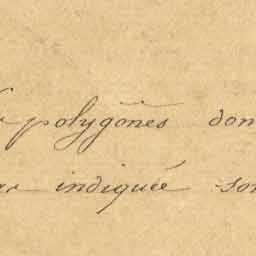 polygones don
indiquée son